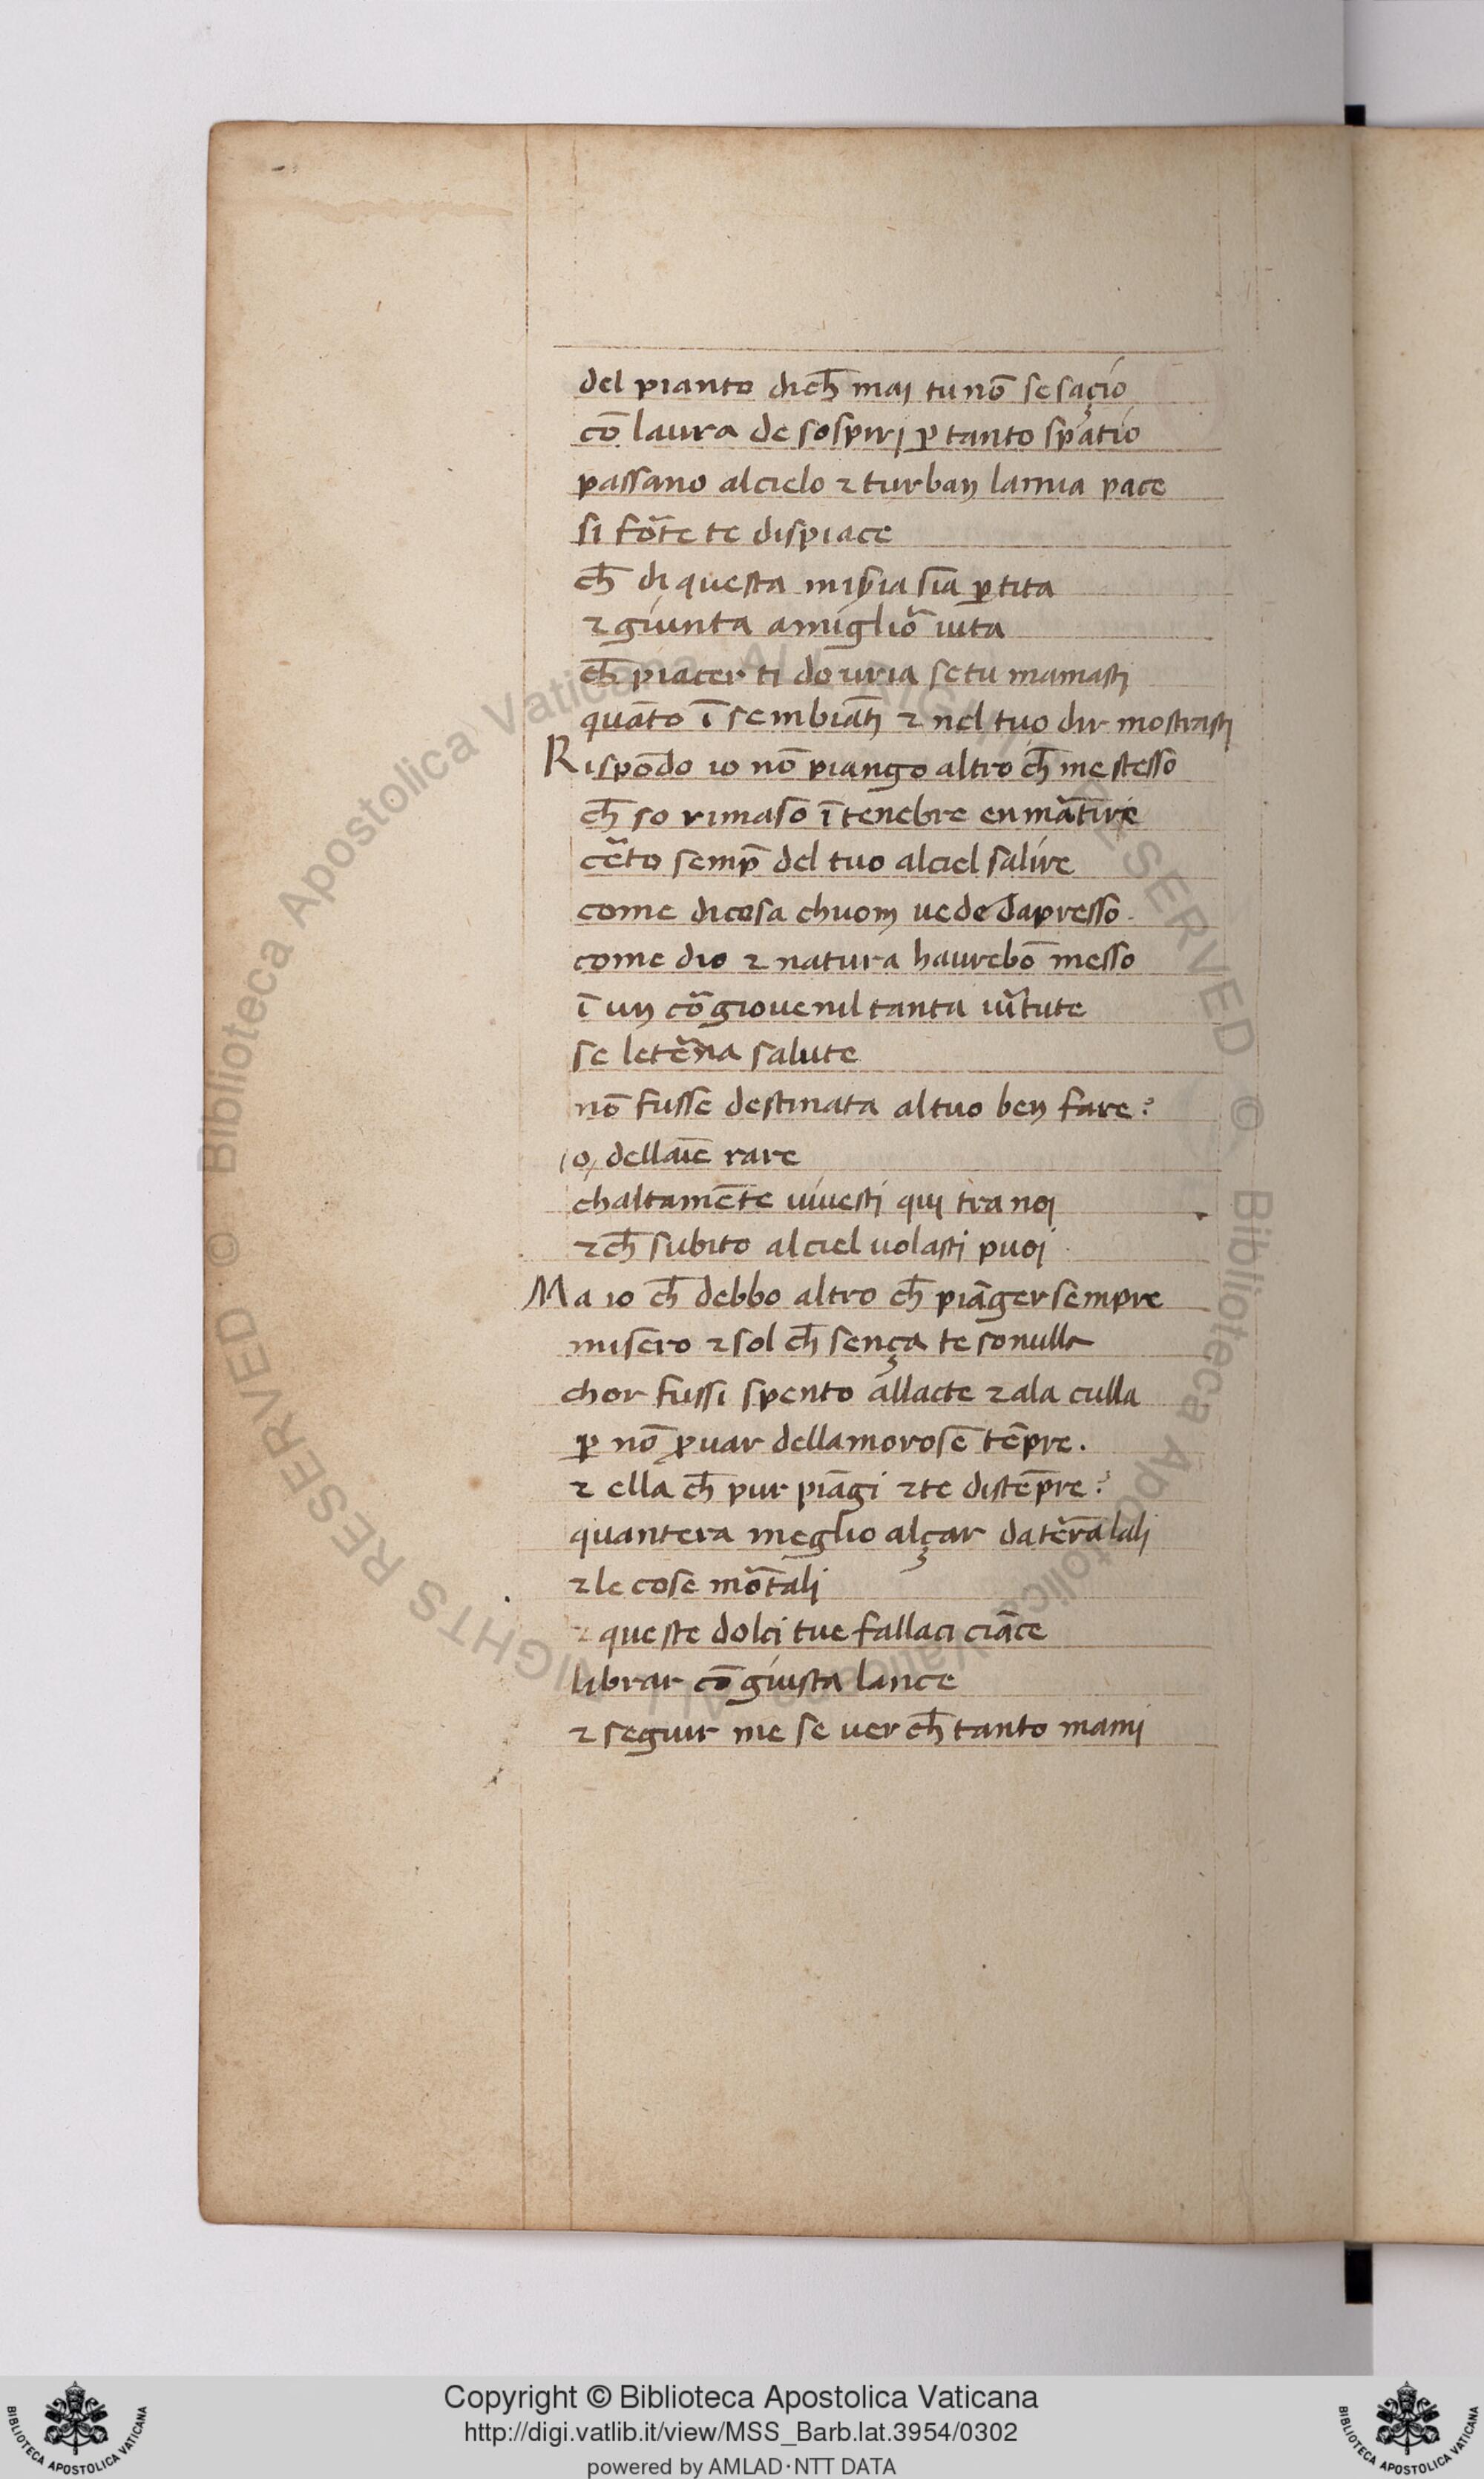 del pianto dich̄ mai tu nō se saçio
cō laura de sospiri ꝑ tanto spatio
passano al cielo ⁊ turban la mia pace
si fōte te dispiace
ch̄ di questa mis̄ia sia ꝑtita
⁊ giunta a migliō uita
ch̄ piacer ti douria se tu mamasti
quāto ī sembiāti ⁊ nel tuo dir mostrasti
Rispōdo io nō piango altro ch̄ me stesso
ch̄ so rimaso ī tenebre en mātire
cēto semp̄ del tuo al ciel salire
come di cosa chuom uede dapresso.
come dio ⁊ natura haurebō messo
ī un cō giouenil tanta uītute
se letēna salute
nō fusse destinata al tuo ben fare?
o, dellaīe rare
chaltamēte uiuesti qui tra noi
⁊ ch̄ subito al ciel uolasti puoi
Ma io ch̄ debbo altro ch̄ piāger sempre
misero ⁊ sol ch̄ sença te so nulla
chor fussi spento allacte ⁊ ala culla
ꝑ nō ꝓuar dellamorose tēpre.
⁊ ella ch̄ pur piāgi ⁊ te distēpre?
quantera meglio alçar da tēra lali
⁊ le cose mōtali
⁊ queste dolci tue fallaci ciāce
librar cō giusta lance
⁊ seguir me se uer ch̄ tanto mami
© Biblioteca Apostolica Vaticana ALL RIGHTS RESERVED © Biblioteca Apostolica Vaticana ALL RIGHTS RESERVED
Copyright © Biblioteca Apostolica Vaticana
http://digi.vatlib.it/view/MSS_Barb.lat.3954/0302
powered by AMLAD·NTT DATA
BIBLIOTECA APOSTOLICA VATICANA
BIBLIOTECA APOSTOLICA VATICANA